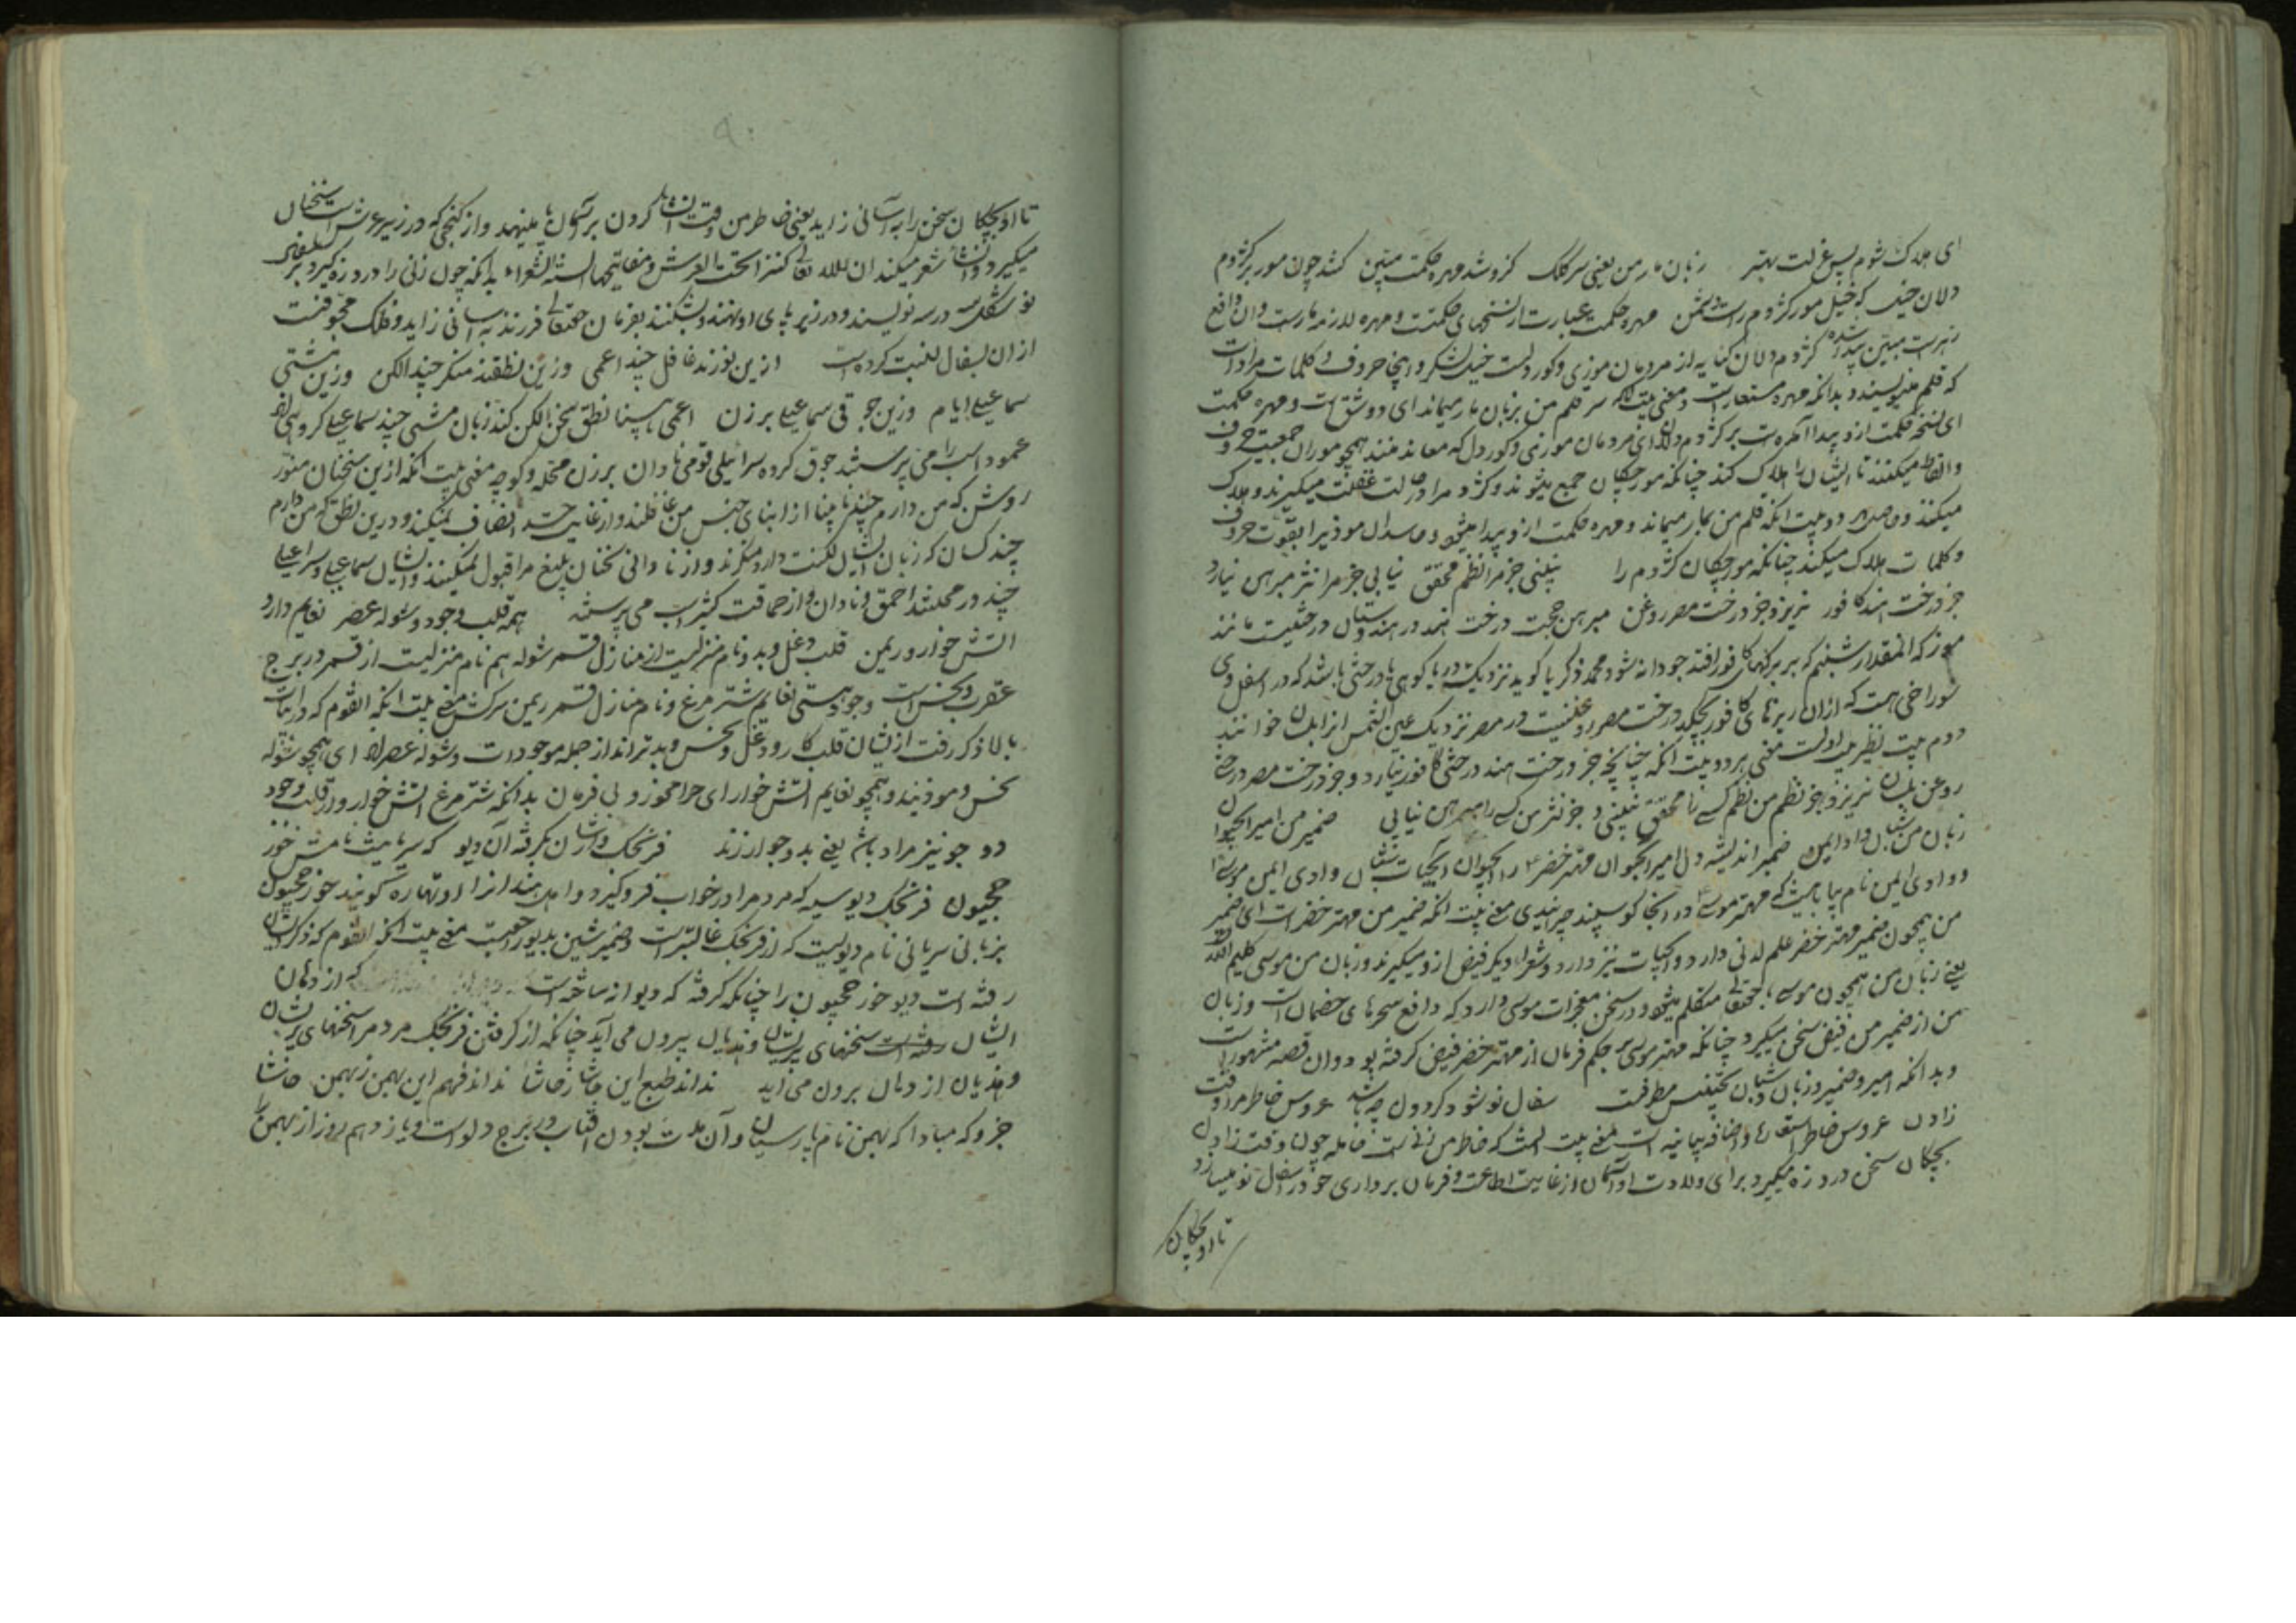 ای هلاک شوم پس عزلت بهتر زبان مار من یعنی سر کلک کزو شد مهره حکمت مبین کشد چون مور بر کژدم
دلان خیل که خیل مور کژدم راست دشمن مهره حکمت عبارت از نسخهای حکمتست و مهره لازمه مارست و آن دافع
زهرست مبین پیدا شده کژدم دلان کنایه از مردمان موذی و کوردلست خیل لشکر و اینجا حروف و کلمات مرادست
که قلم مینویسند و بدانکه مهره مستعارست و معنی بیت آنکه سر قلم من بزبان مار میماند ای دو شق است و مهره حکمت
ای نسخه حکمت ازو پیدا آمده است بر کژدم دلان ای مردمان موذی و کوردل که معاند منند همچو موران جمعیت حروف
و الفاظ میکنند تا ایشان را هلاک کند چنانکه مورچگان جمع میشوند و کژدم را در حالت غفلت میگیرند و هلاک
میکنند و حاصل هر دو بیت آنکه قلم من بمار میماند و مهره حکمت ازو پیدا میشود و حاسدان موذی را بقوت حروف
و کلمات هلاک میکند چنانکه مورچگان کژدم را نبینی جز مرا نظم محقق نیابی جز مرا نثر مبرهن نیارد
جز درخت هند کافور نریزد جز درخت مصر روغن مبرهن حجت درخت هند در هندوستان درختیست مانند
موز که المقدار شبنم که بر برگهای کافور افتد جودانه شود محمد ذکریا گوید نزدیک دریا کوهی با درختی باشد که در اسفل وی
سوراخی هست که ازان ریزهای کافور بچکد درخت مصر روغنیست و در مصر نزدیک عین الشمس انرا بلسان خوانند
دوم بیت نظیر بیت اولست معنی هر دو بیت آنکه چنانچه جز درخت هند درختی کافور نیارد و جز درخت مصر درختی
روغن بلسان نریزد جز نظم من نظم کسی را محقق نبینی و جز نثر من کسی را مبرهن نیابی ضمیر من امیر الحیوان
زبان من شبان وادایمن ضمیر اندیشه دل امیر الحیوان مهتر خضر را الحیوان آبحیات شبان وادی ایمن موسی
و وادی ایمن نام بیابانیست که مهتر موسی در آنجا گوسپند چرانیدی معنی بیت آنکه ضمیر من مهتر خضر است ای ضمیر
من همچون ضمیر مهتر خضر علم لدنی دارد و آبحیات نیز دارد و شعراء دیگر فیض ازو میگیرند و زبان من موسی کلیم الله
یعنی زبان من همچون موسی بحقتعالی متکلم میشود و در سخن معجزات موسی دارد که دافع سحرهای خصمان است و زبان
من از ضمیر من فیض سخن میگیرد چنانکه مهتر موسی بحکم فرمان از مهتر خضر فیض گرفته بود و آن قصه مشهور است
و بدانکه امیر و ضمیر و زبان و شبان تجنیس مطرفست سفال نو شود گردون چه باشد عروس خاطرم را وقت
زادن عروس خاطر استعاره و اضافه بیانیه است معنی بیت آنست که خاطر من زنیست حامله چون وقت زادن
بچگان سخن درد زه میگیرد برای ولادت او آسمان از غایت اطاعت و فرمان برداری خود را سفال نو میسازد
تا او بچگان
۹۰
تا او بچگان سخن را به آسانی زاید یعنی خاطر من وقت انشا کردن بر آسمان پا مینهد و از گنجی که در زیر عرش است سخنان
میگیرد و انشاء شعر میکند ان لله تعالی کنزا تحت العرش و مفاتیحها السنة الشعراء بدانکه چون زنی را درد زه گیرد بر سفال
نو شکل سه در سه نویسند و در زیر پای او نهند و بشکنند بفرمان حقتعالی فرزند به آسانی زاید و فلک مجوفست
ازان بسفال نسبت کرده است ازین نورند غافل چند اعمی وزین نطقند منکر چند الکن وزین مشتی
سماعیلی ایام وزین جوقی سماعیلی برزن اعمی نابینا نطق سخن الکن کند زبان مشتی چند سماعیلی گروهی اند
عموداسب را می پرستند جوق گروه سرائیلی قومی نادان برزن محله و کوچه معنی بیت آنکه ازین سخنان منور
روشن که من دارم چند نابینا از ابنای جنس من غافلند و از غایت حسد انصاف نمیکنند و درین نطق که من دارم
چند کسان که زبان ایشان لکنت دارد منکرند و از نادانی سخنان بلیغ مرا قبول نمیکنند و ایشان سماعیلی و سراعیلی
چند در محلتند احمق و نادان و از حماقت کثیراسب می پرستند همه قلب وجود و شوله عصر نعایم دارد
آتش خوار و ریمن قلب دغل و بد و نام منزلیست از منازل قمر شوله هم نام منزلیست از قمر در برج
عقرب و نحس است وجود هستی نعایم شترمرغ و نام منازل قمر ریمن سرکش معنی بیت آنکه القوم که در ابیات
بالا ذکر رفت از ایشان قلب کارود دغل و نحس و بدتراند از جمله موجودات و شوله عصراند ای همچو شوله
نحس و موذیند و همچو نعایم آتش خوار ای حرامخور و بی فرمان بدانکه شترمرغ آتش خوار و از قلب وجود
دو جو نیز مراد باشد یعنی بدو جو ارزند فرنجک وارشان بگرفته آن دیو که سریانیست نامش خوز
حجیون فرنجک دیو سیه که مردم را در خواب فرو گیرد و اهل هند انرا اوتهاره گویند خوز حجیون
بزبانی سریانی نام دیویست که از فرنجک غالبتر است و ضمیر شین بدیو راجعست معنی بیت آنکه القوم که ذکر ایشان
رفته است دیو خوز حجیون را چنانکه گرفته که دیوانه ساخته است که از دهان
ایشان رفته است سخنهای پریشان و هذیان بیرون می آید چنانکه از گرفتن فرنجک مردم را سخنهای پریشان
و هذیان از دهان برون می آید نداند طبع این حاشا ز حاشا نداند فهم این بهمن ز بهمن حاشا
جز و که مبادا که بهمن نام پارسیان و آن مدت بودن آفتاب در برج دلو است و یازدهم روز از بهمن را